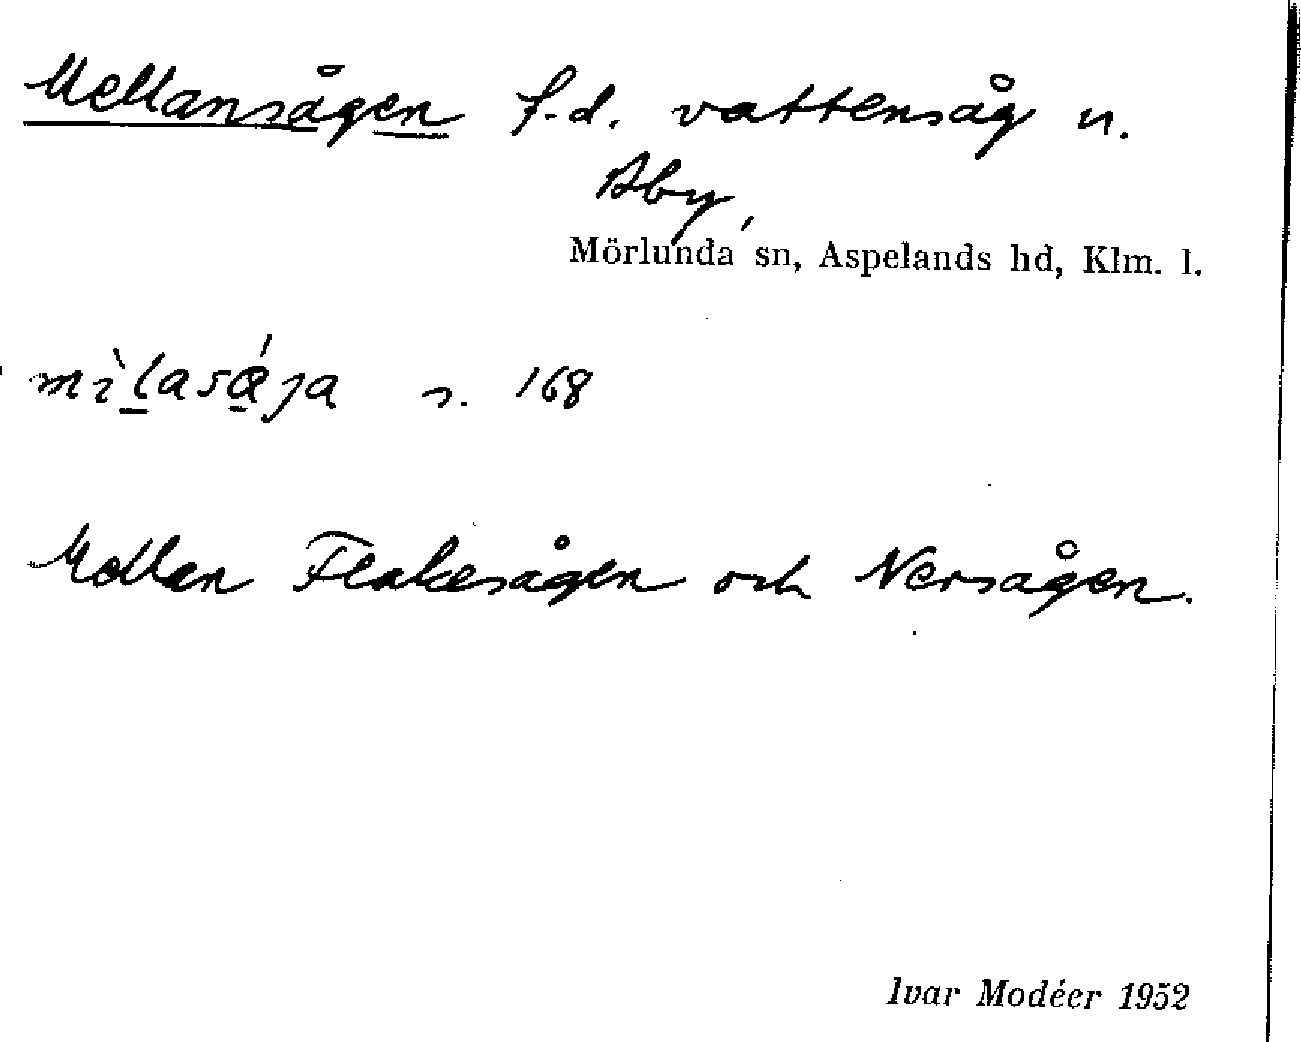 Mellansågen f.d. vattensåg u.
Åby,
Mörlunda sn, Aspelands hd, Klm. l.
s. 168
Mellan Flakesågen och Nersågen.
Ivar Modéer 1952